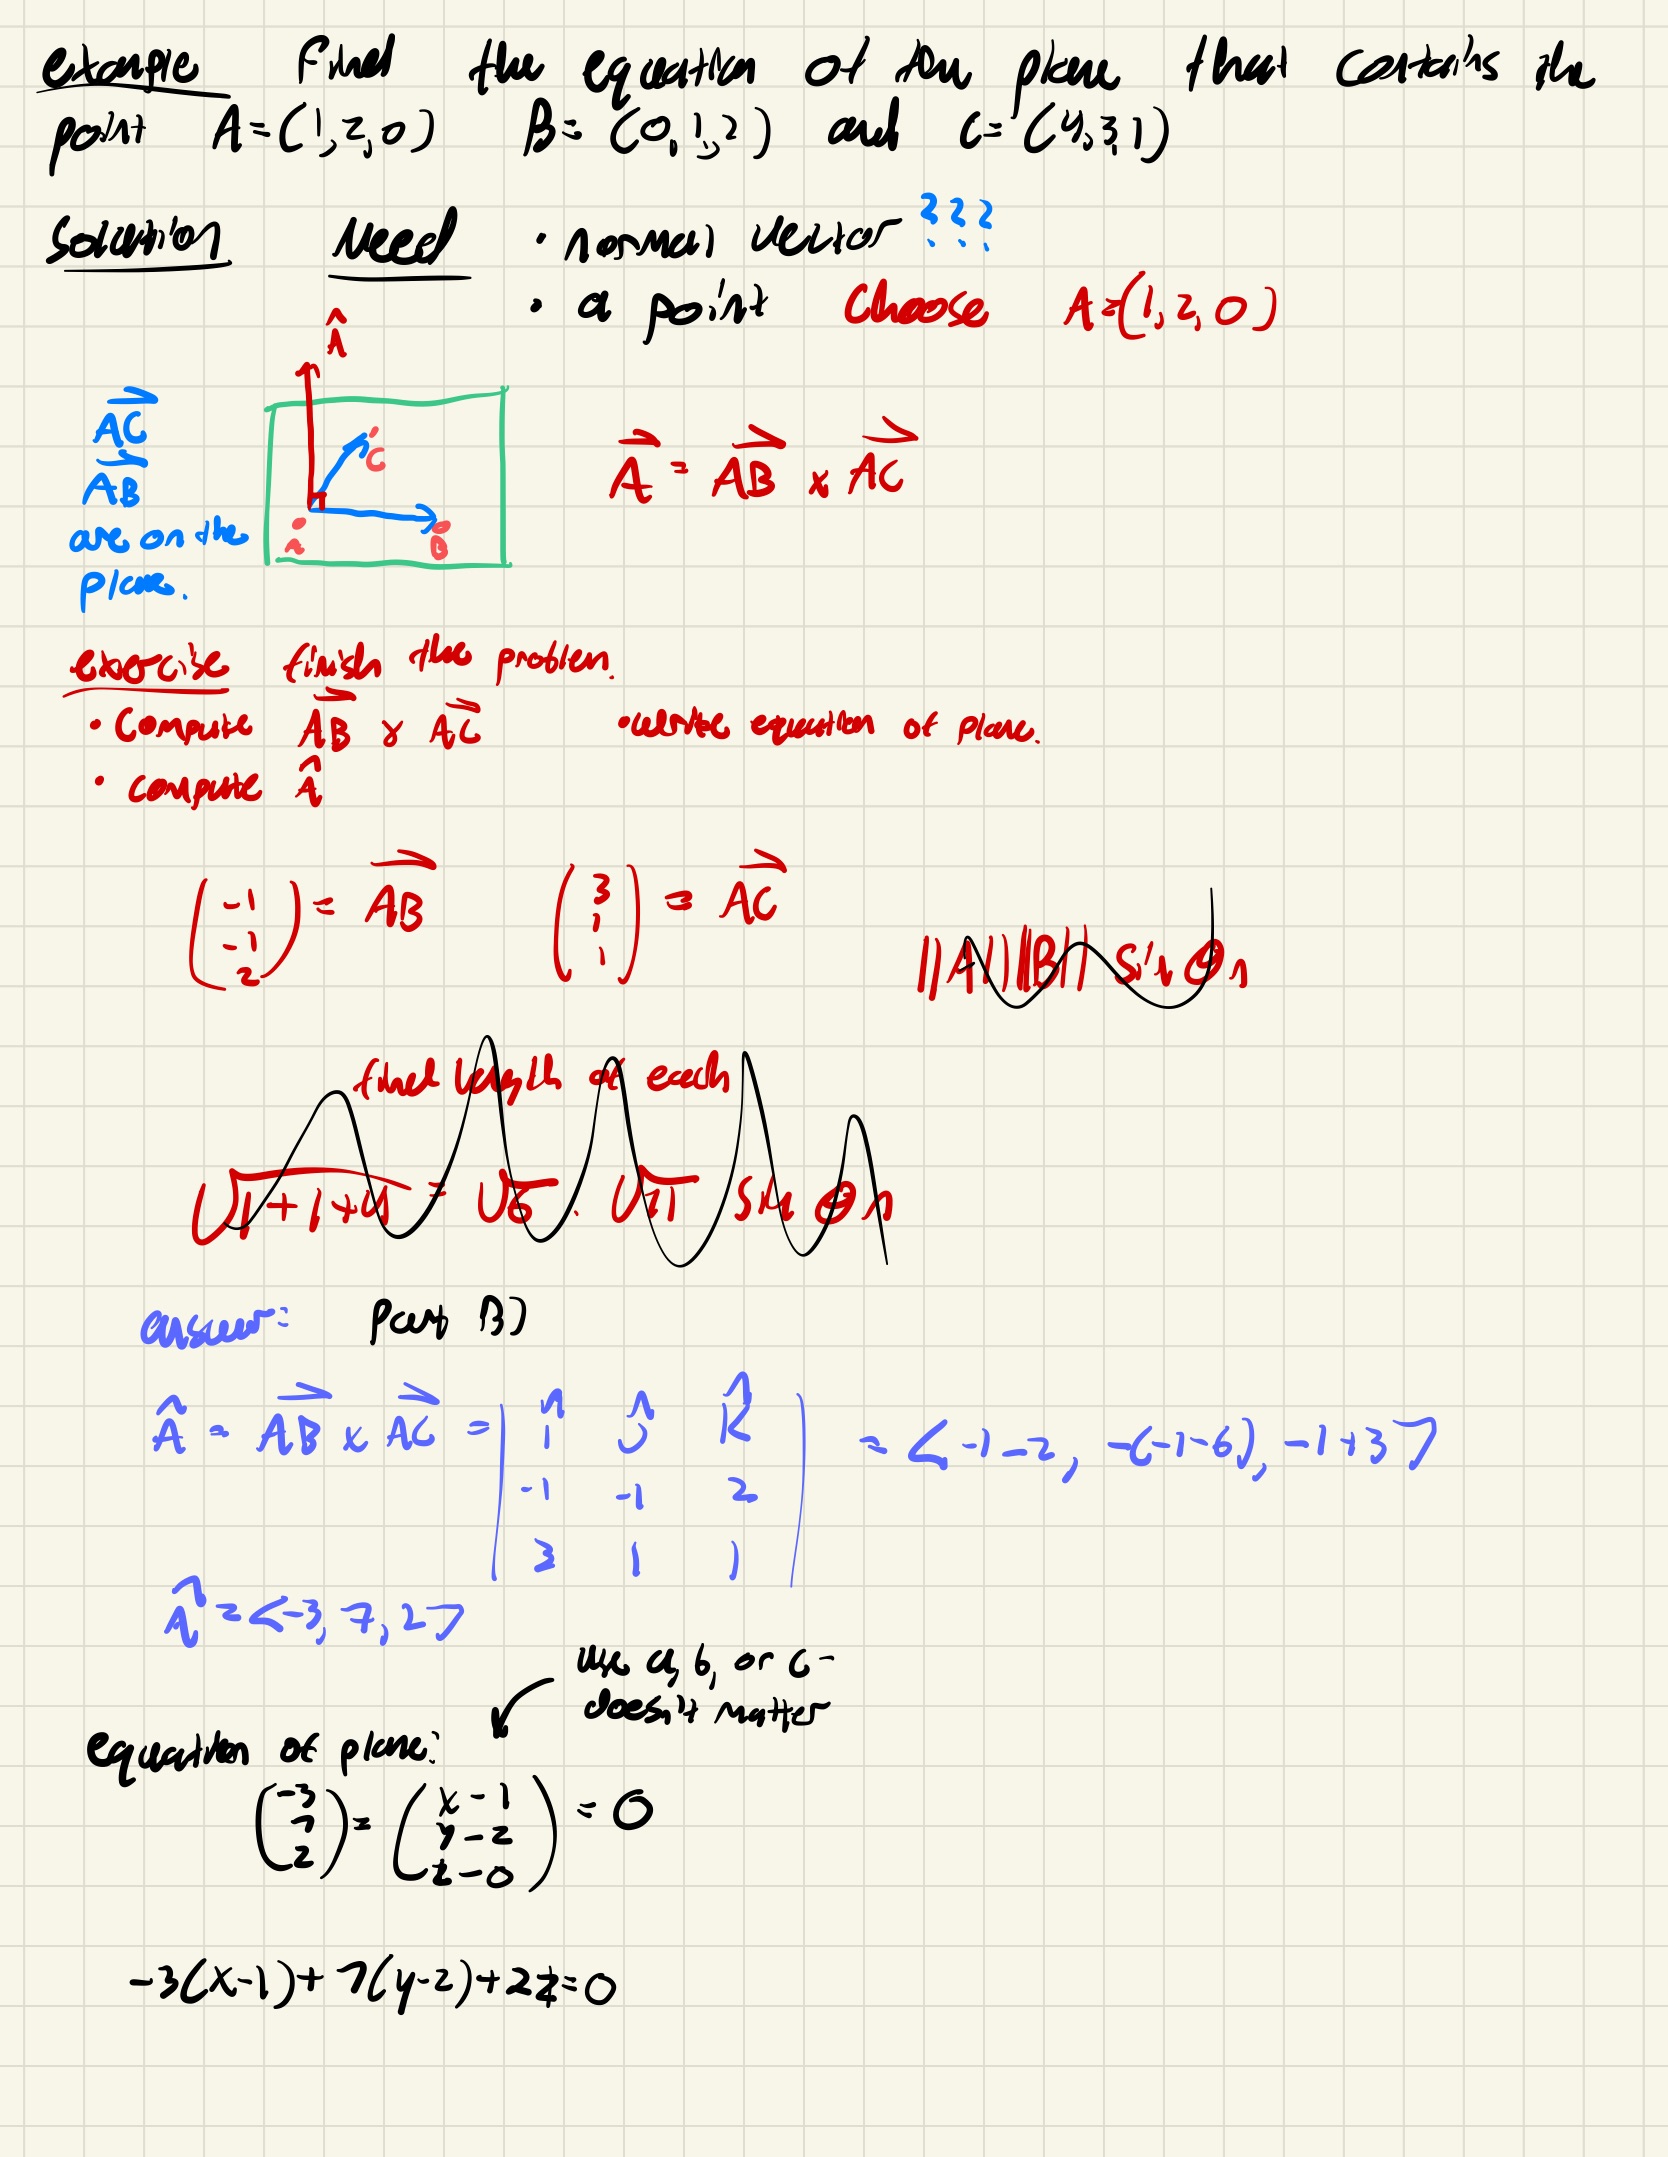 example Find the equation of the plane that contains the
point A=(1,2,0) B=(0,1,2) and C=(4,3,1)
solution Need • normal vector ???
• a point Choose A=(1,2,0)
n̂
AC→
AB→
are on the
plane.
C
A
B
n→ = AB→ x AC→
exercise finish the problem.
• Compute AB→ x AC→ • write equation of plane.
• compute n̂
(-1 -1 2) = AB→ (3 1 1) = AC→
||A|| ||B|| sin θ n
find length of each
√1+1+4 = √6 . √11 sin θ n
answer: Part B)
n̂ = AB→ x AC→ = | î ĵ k̂ | = <-1-2, -(-1-6), -1+3>
-1 -1 2
3 1 1
n̂ = <-3, 7, 2>
use a, b, or c-
doesn't matter
equation of plane:
(-3 7 2) = (x-1 y-2 z-0) = 0
-3(x-1)+7(y-2)+2z=0